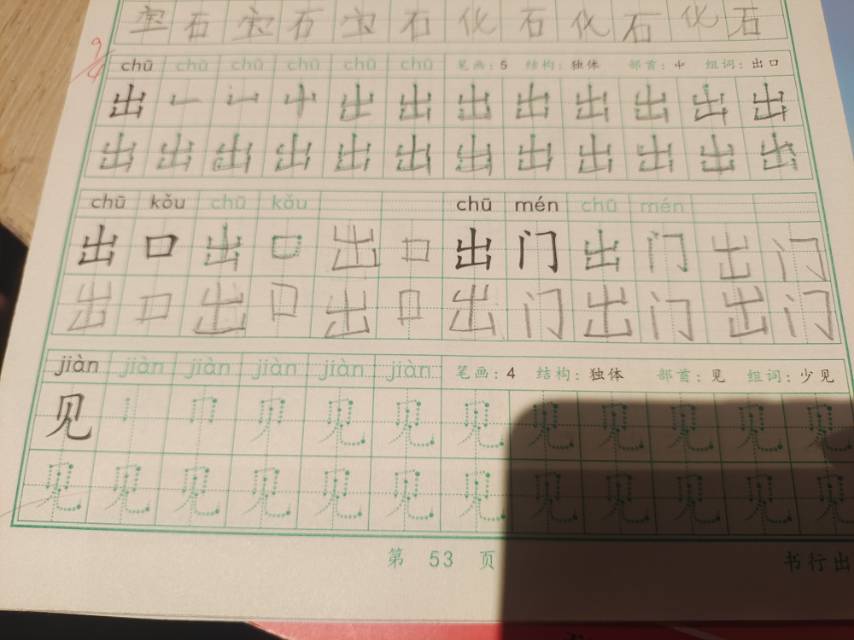 宝 石 宝 石 宝 石 化 石 化 石 化 石
9/4
chū chū chū chū chū chū 笔画:5 结构:独体 部首:屮 组词:出口
出 出 出 出 出 出 出 出 出
出 出 出 出 出 出 出 出 出 出 出 出
chū kǒu chū kǒu chū mén chū mén
出 口 出 口 出 口 出 门 出 门 出 门
出 口 出 口 出 口 出 门 出 门 出 门
jiàn jiàn jiàn jiàn jiàn jiàn 笔画:4 结构:独体 部首:见 组词:少见
见 见 见 见 见 见 见 见 见
见 见 见 见 见 见 见 见 见 见 见 见
第 53 页
书行出